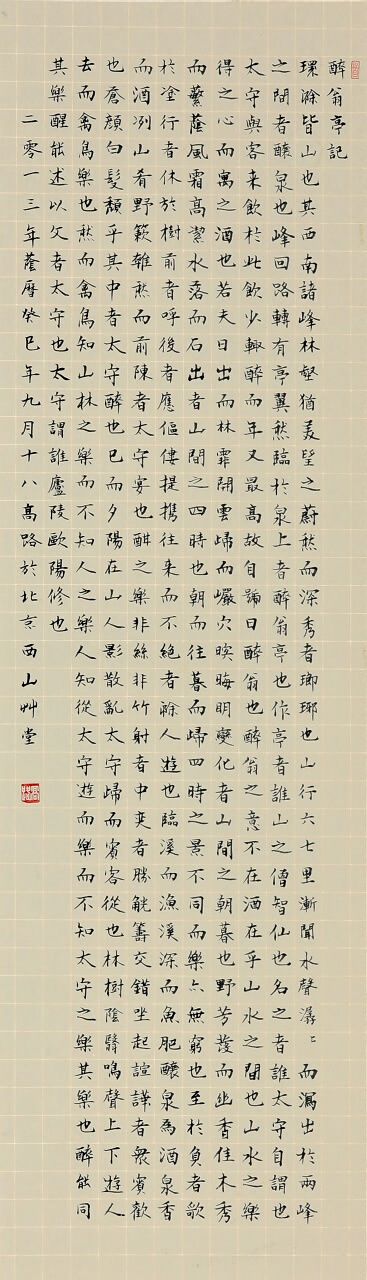 醉翁亭記
環滁皆山也其西南諸峰林壑猶美望之蔚然而深秀者瑯琊也山行六七里漸聞水聲潺〻而瀉出於兩峰
之間者釀泉也峰回路轉有亭翼然臨於泉上者醉翁亭也作亭者誰山之僧智仙也名之者誰太守自謂也
太守與客來飲於此飲少輒醉而年又最高故自號曰醉翁也醉翁之意不在酒在乎山水之間也山水之樂
得之心而寓之酒也若夫日出而林霏開雲歸而巖穴暝晦明變化者山間之朝暮也野芳發而幽香佳木秀
而蘩蔭風霜高潔水落而石出者山間之四時也朝而往暮而歸四時之景不同而樂亦無窮也至於負者歌
於塗行者休於樹前者呼後者應傴僂提攜往来而不絕者滁人遊也臨溪而漁溪深而魚肥釀泉為酒泉香
而酒洌山肴野簌雜然而前陳者太守宴也酣之樂非絲非竹射者中奕者勝觥籌交錯坐起諠譁者衆賓歡
也蒼顏白髮頹乎其中者太守醉也已而夕陽在山人影散亂太守歸而賓客從也林樹陰翳鳴聲上下遊人
去而禽鳥樂也然而禽鳥知山林之樂而不知人之樂人知從太守遊而樂而不知太守之樂其樂也醉能同
其樂醒能述以文者太守也太守謂誰廬陵歐陽修也
二零一三年蔭曆癸巳年九月十八高路於北京西山艸堂